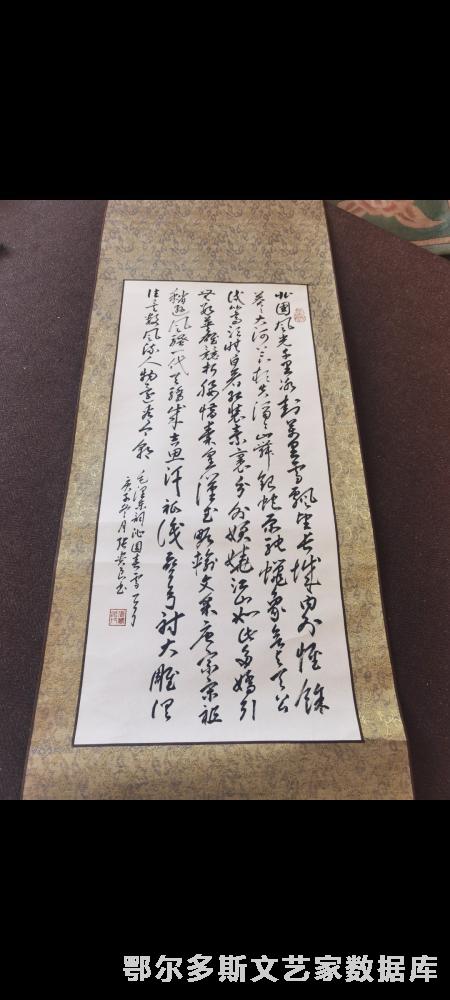 北國风光千里冰封萬里雪飘望长城内外惟馀
莽莽大河上下顿失滔滔山舞银蛇原驰蠟象欲与天公
试比高须晴日看红装素裹分外妖娆江山如此多娇引
无数英雄竞折腰惜秦皇汉武略输文采唐宗宋祖
稍逊风骚一代天骄成吉思汗只识弯弓射大雕俱
往矣数风流人物还看今朝
毛泽东词沁园春雪一首
庚子 月张 书
鄂尔多斯文艺家数据库